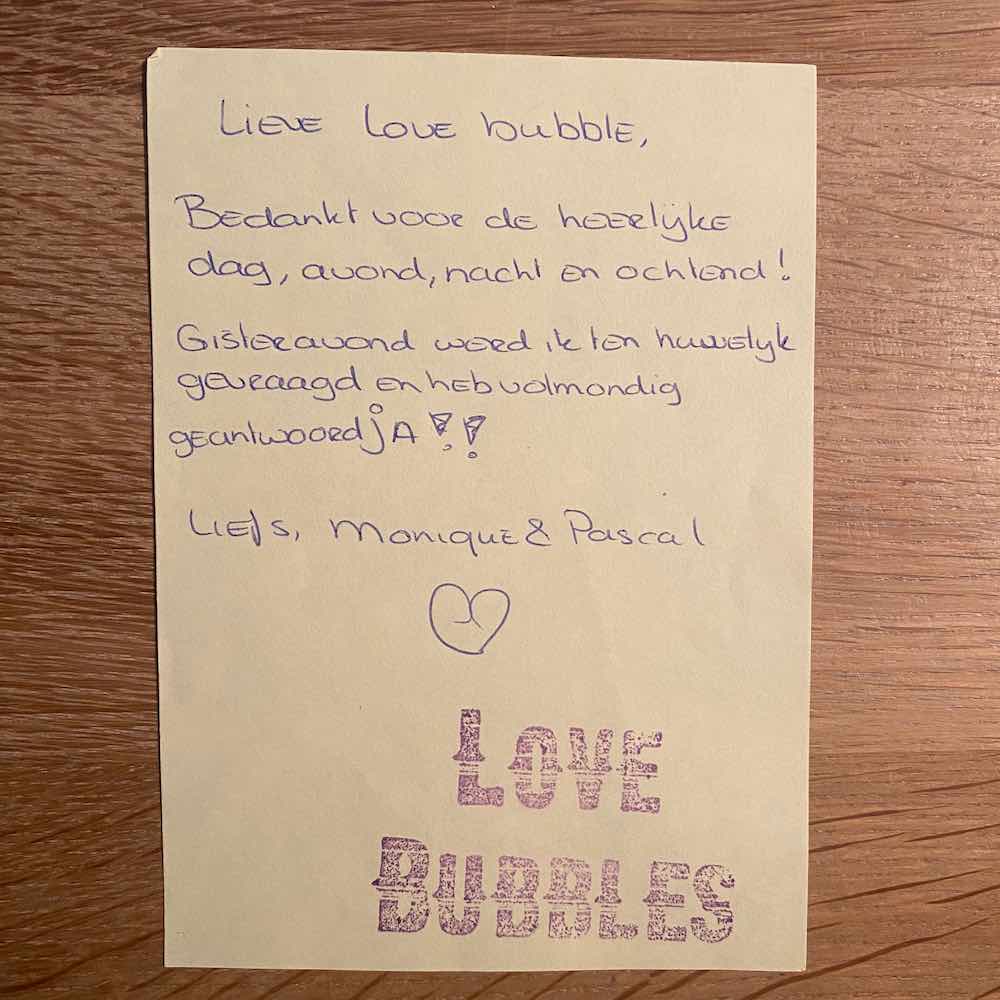 Lieve Love bubble,
Bedankt voor de heerlijke
dag, avond, nacht en ochtend!
Gisteravond werd ik ten huwelijk
gevraagd en heb volmondig
geantwoord jA!!
Liefs, Monique & Pascal
LOVE
BUBBLES